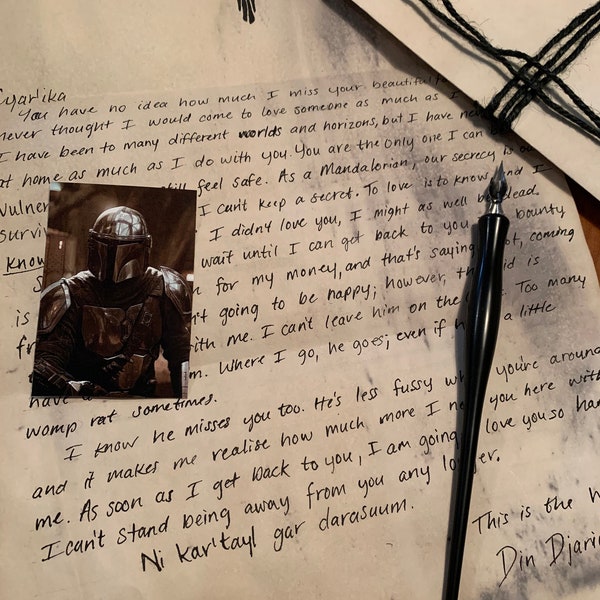 Cyar'ika
You have no idea how much I miss your beautiful
never thought I would come to love someone as much as I
I have been to many different worlds and horizons, but I have
at home as much as I do with you. You are the only one I can
feel safe. As a Mandalorian, our secrecy is
I can't keep a secret. To love is to know, and I
know I didn't love you, I might as well be dead.
wait until I can get back to you. bounty
is for my money, and that's saying coming
going to be happy; however, the kid is
with me. I can't leave him on the Too many
have Where I go, he goes; even if a little
womp rat sometimes.
I know he misses you too. He's less fussy you're around
and it makes me realise how much more I you here with
me. As soon as I get back to you, I am going love you so
I can't stand being away from you any longer.
Ni kar'tayl gar darasuum.
This is the
Din Djarin